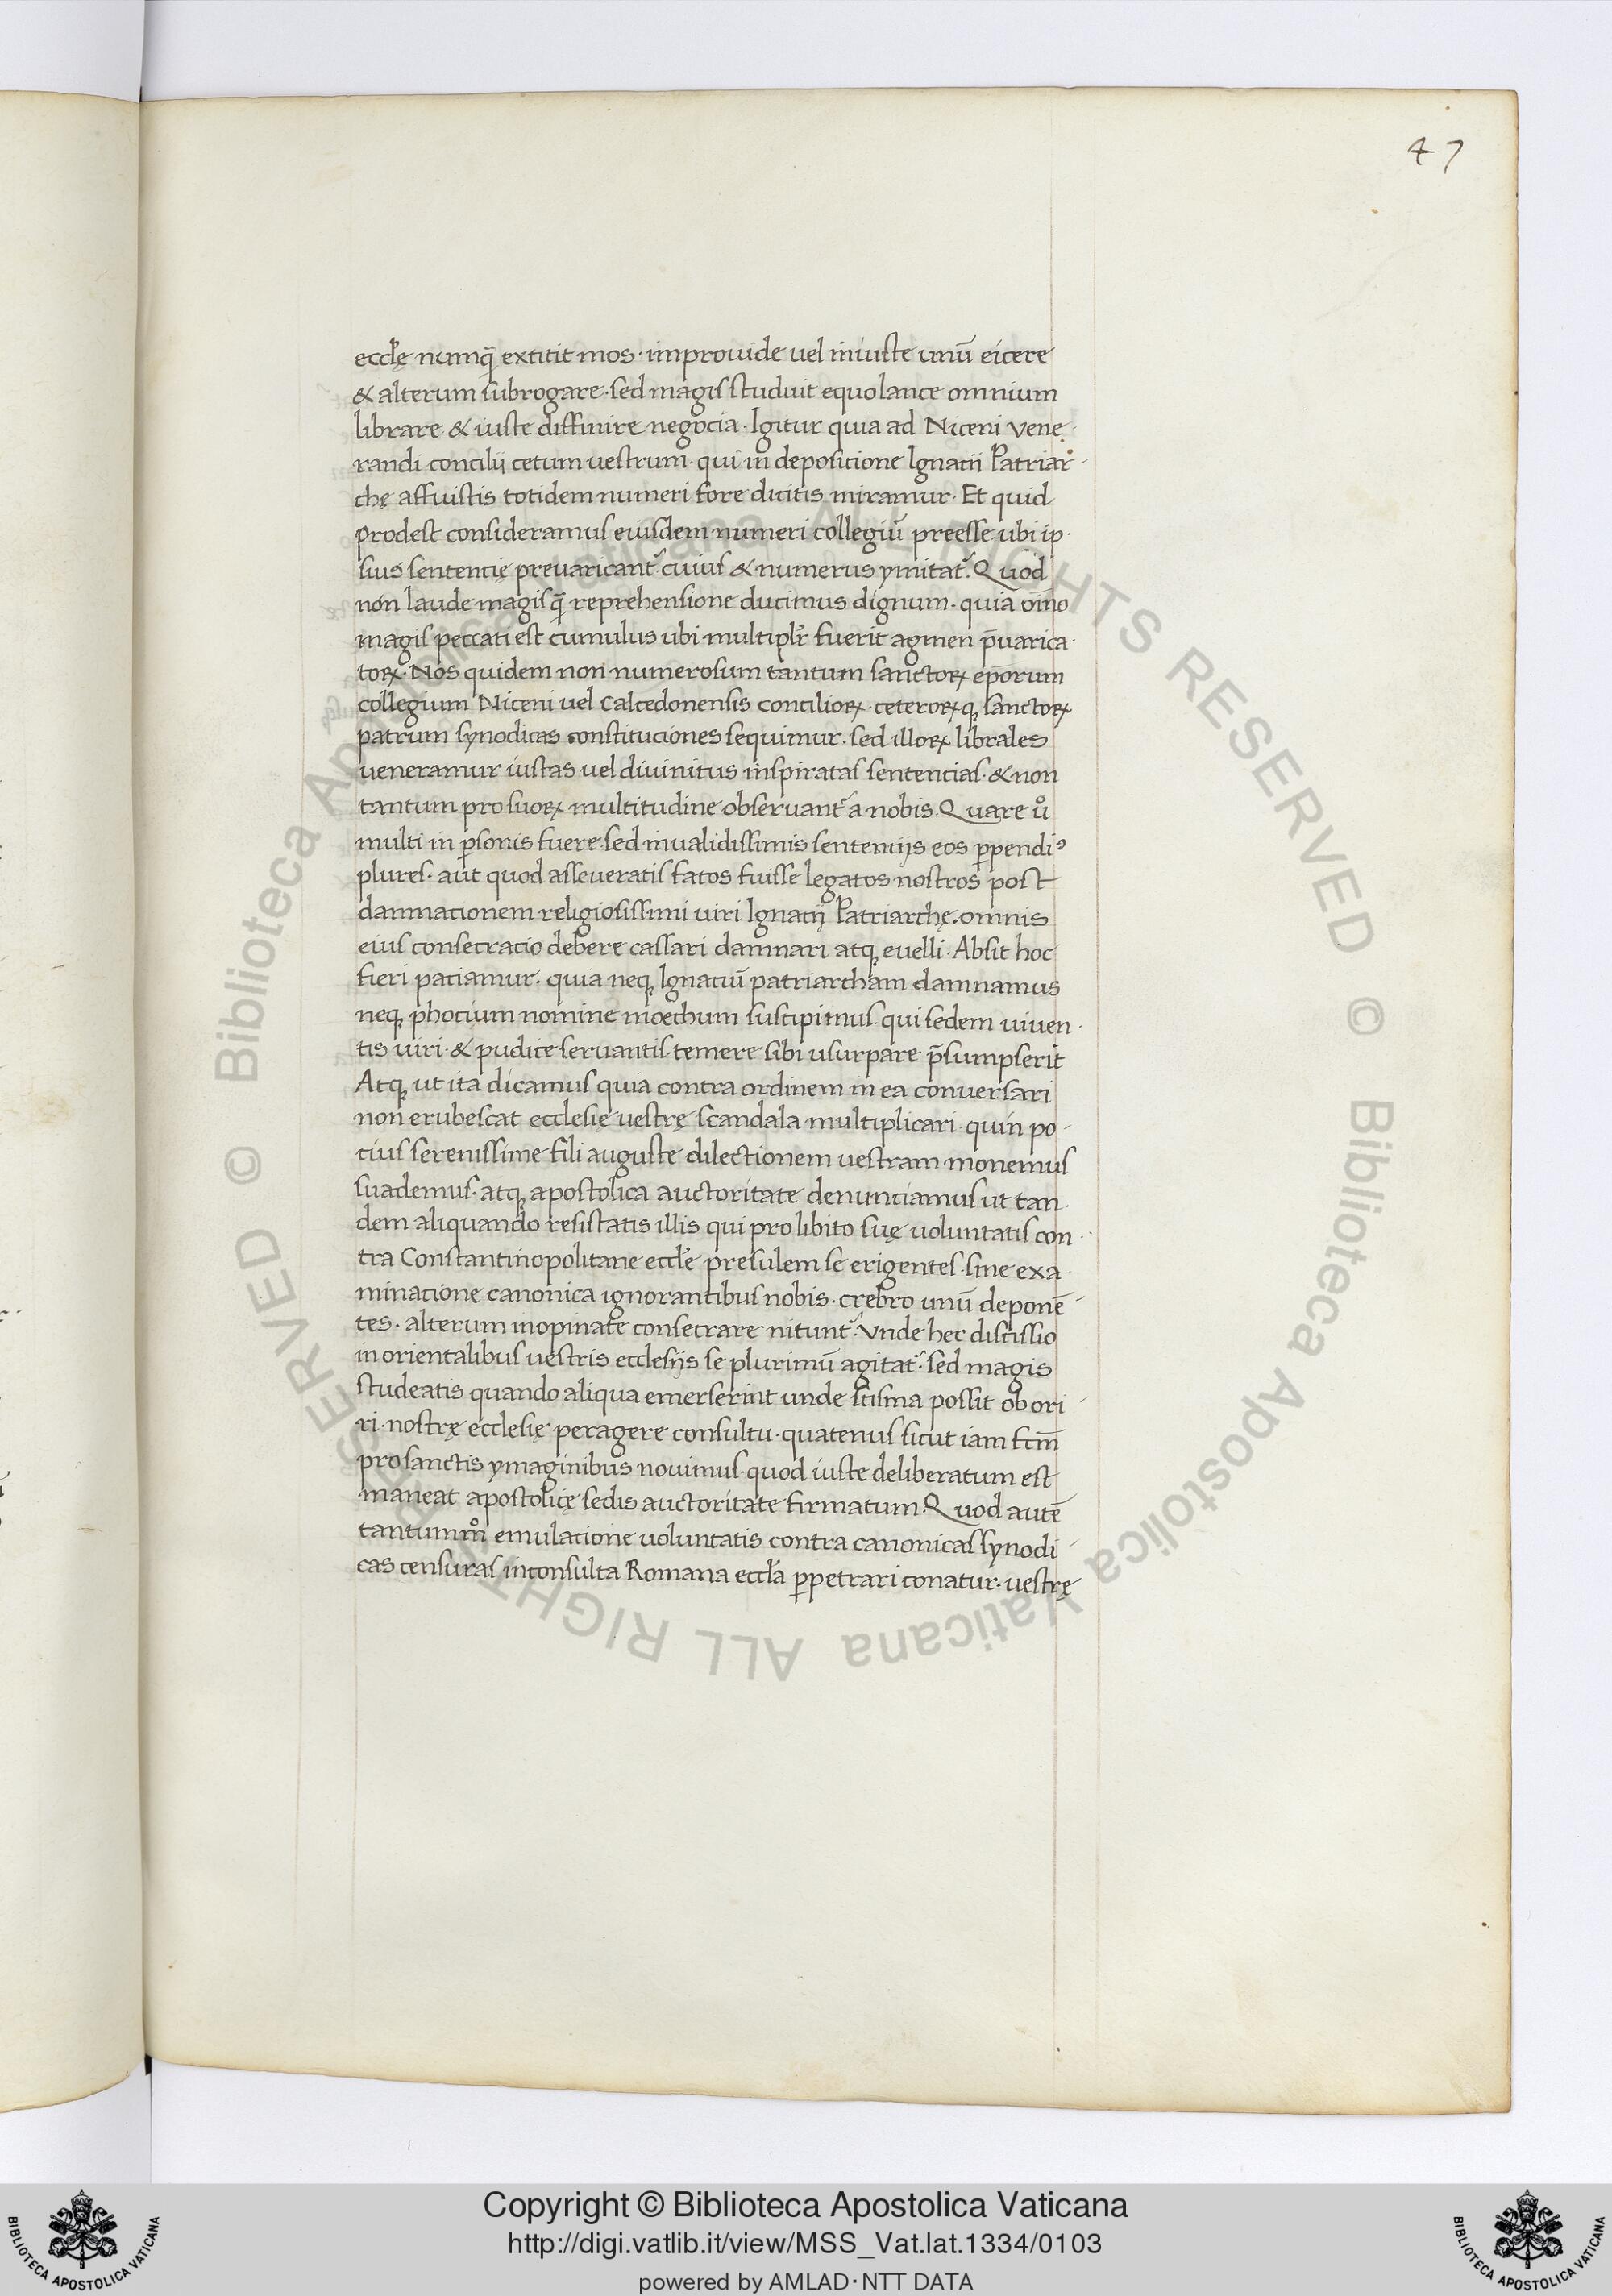 47
ecclę numꝗ̄ extitit mos · improuide uel iniuste unū eicere
& alterum subrogare · sed magis studuit equo lance omnium
librare & iuste diffinire negocia · Igitur quia ad Niceni vene ·
randi concilii cetum uestrum · qui in depositione Ignacii Patriar-
chę affuistis totidem numeri fore dicitis miramur · Et quid
prodest consideramus eiusdem numeri collegiū preesse · ubi ip ·
sius sentencię preuaricant᷑ cuius & numerus ymitat᷑. Quod
non laude magis ꝗ̄ reprehensione ducimus dignum · quia oīno
magis peccati est cumulus ubi multiplr̄ fuerit agmen p̄uarica ·
toꝝ · Nos quidem non numerosum tantum sanctoꝝ ep̄orum
collegium Niceni uel Calcedonensis concilioꝝ · ceteroꝝqꝫ sanctoꝝ
patrum synodicas constituciones sequimur · sed illoꝝ librales
ueneramur iustas uel diuinitus inspiratas sentencias · & non
tantum pro suoꝝ multitudine obseruant᷑ a nobis. Quare uͦ
multi in ꝑsonis fuere · sed inualidissimis sentencijs eos ꝑpendiꝰ
plures · aut quod asseueratis fatos fuisse legatos nostros post
damnacionem religiosissimi uiri Ignacij Patriarchę. omnis
eius consecracio debere cassari damnari atqꝫ euelli · Absit hoc
fieri paciamur · quia neqꝫ Ignaciū patriarcham damnamus
neqꝫ phocium nomine moechum suscipimus · qui sedem uiuen ·
tis uiri · & pudice seruantis · temere sibi usurpare p̄sumpserit
Atqꝫ ut ita dicamus quia contra ordinem in ea conuersari
non erubescat ecclesię uestrę scandala multiplicari · quin po -
cius serenissime fili auguste dilectionem uestram monemus
suademus · atqꝫ apostolica auctoritate denunciamus ut tan ·
dem aliquando resistatis illis qui pro libito suę uoluntatis con ·
tra Constantinopolitane eccłe presulem se erigentes · sine exa
minacione canonica ignorantibus nobis · crebro unū deponē -
tes · alterum inopinate consecrare nitunt᷑. Vnde hec discissio
in orientalibus uestris ecclesijs se plurimū agitat᷑ · sed magis
studeatis quando aliqua emerserint unde scisma possit ob ori -
ri · nostrę ecclesię peragere consultu · quatenus sicut iam fcm̄
pro sanctis ymaginibus nouimus · quod iuste deliberatum est
maneat apostolicę sedis auctoritate firmatum. Quod autē
tantummͦ emulacione uoluntatis contra canonicas synodi -
cas censuras inconsulta Romana eccła ꝑpetrari conatur · uestrę
© Biblioteca Apostolica Vaticana ALL RIGHTS RESERVED
© Biblioteca Apostolica Vaticana ALL RIGHTS RESERVED
Copyright © Biblioteca Apostolica Vaticana
http://digi.vatlib.it/view/MSS_Vat.lat.1334/0103
powered by AMLAD·NTT DATA
BIBLIOTECA APOSTOLICA VATICANA
BIBLIOTECA APOSTOLICA VATICANA